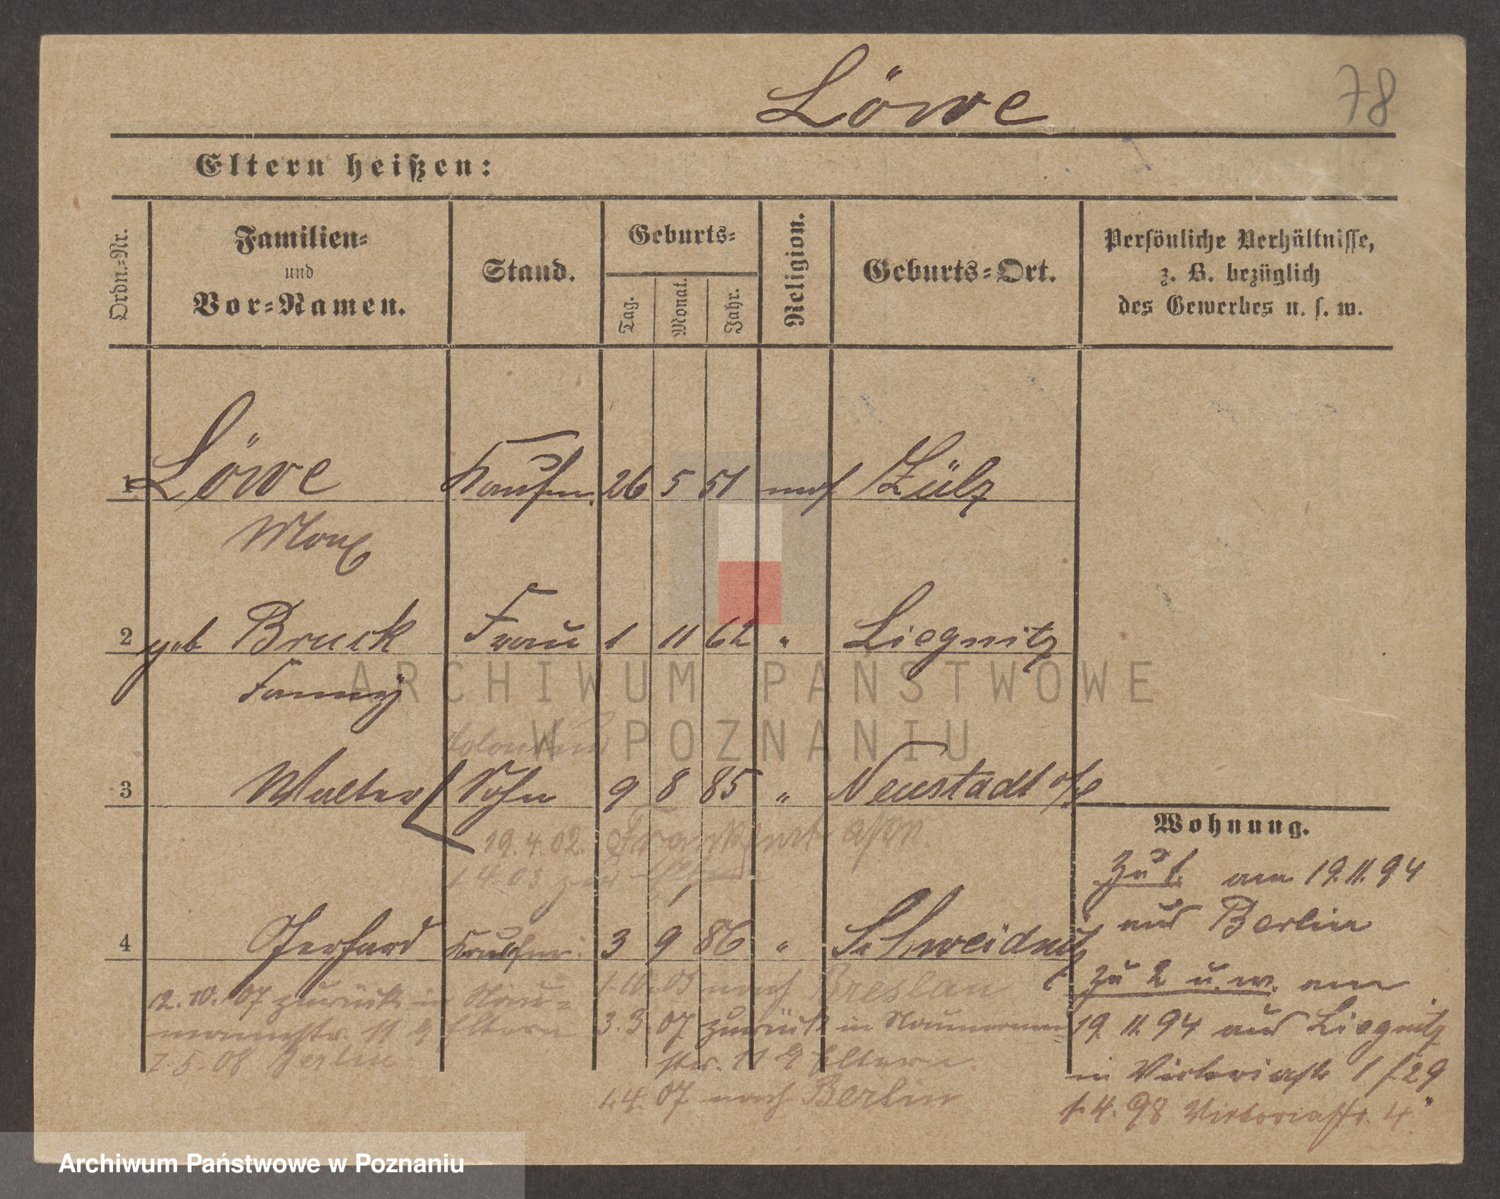 Löwe
78
Eltern heißen:
Ordn.-Nr.
Familien-
und
Vor-Namen.
Stand.
Geburts-
Tag.
Monat.
Jahr.
Religion.
Geburts-Ort.
Persönliche Verhältnisse,
z. B. bezüglich
des Gewerbes u. s. w.
1 Löwe Kaufm. 26 5 51 mos Zülz
Max
2 geb Bruck Frau 1 11 62 " Liegnitz
Fanny
ARCHIWUM PAŃSTWOWE
W POZNANIU
3 Walter Sohn 9 8 85 " Neustadt o/s
19.4.02. Frankfurt a/M.
1.4.03 zur
Wohnung.
Zu 1. am 19.11.94
aus Berlin
4 Gerhard Kaufm. 3 9 86 " Schweidnitz
zu 2 u.w. am
19.11.94 aus Liegnitz
in Victoriastr 1 f. 29
1.4.98 Victoriastr. 4.
1.10.05 nach Breslau
3.3.07 zurück in Naumann=
str. 11 Eltern.
1.4.07 nach Berlin
12.10.07 zurück in Nau=
mannstr. 11 Eltern
7.5.08 Berlin
Archiwum Państwowe w Poznaniu